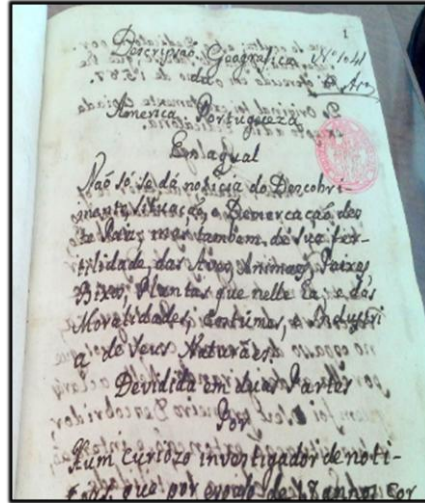 1
Descripsaõ Geografica Nº 1041
da
America Portugueza
Enlaqual
Naõ só se dá noticia do Descobri
mento, situação, e Demarcação des
te Paiz; mas tambem, de sua fer-
tilidade, das Aves, Animaes, Peixes,
Bixos, Plantas que nelle ha; e dos
Moralidades, Custumes, e Industri
a de seus Naturães.
Devidida em duas Partes
Por
Hum curiozo investigador de noti-
que por espaço de 17 annos cor